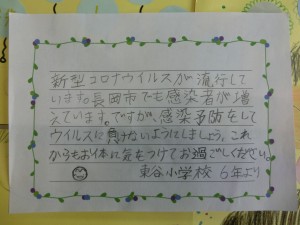 新型コロナウイルスが流行して
います。長岡市でも感染者が増
えています。ですが、感染予防をして
ウイルスに負けないようにしましょう。これ
からもお体に気をつけてお過ごしください。
東谷小学校 6年より